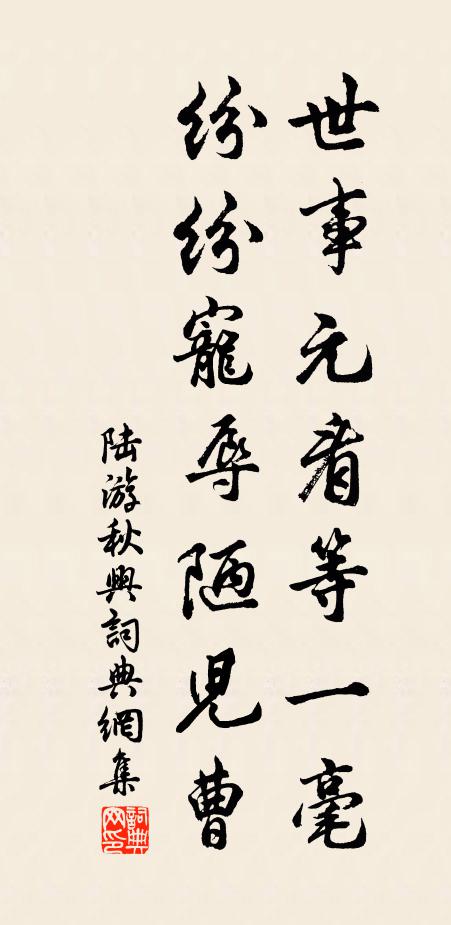 世事元看等一毫
紛紛寵辱陋兒曹
陆游秋興詞典網集
詞典网印